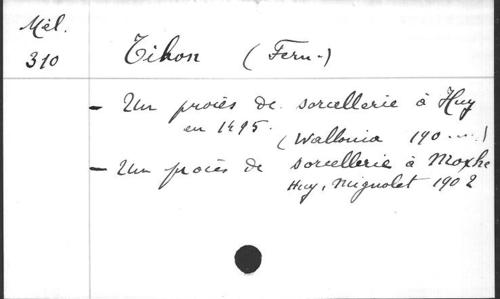 Mél.
310
Tihon (Fern.)
- Un procès de sorcellerie à Huy
en 1495.
(Wallonia 190....)
- Un procès de sorcellerie à Moxhe
Huy, Mignolet 1902